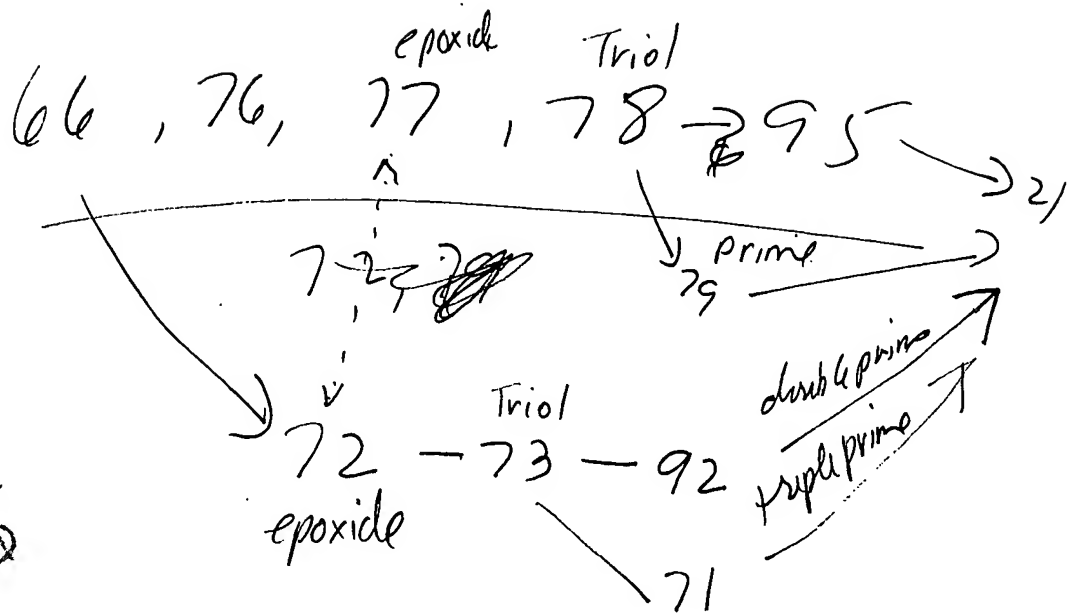 epoxide Triol
66, 76, 77, 78 → 95
21
72,
79 prime
double prime
Triol
triple prime
72 - 73 - 92
epoxide
71